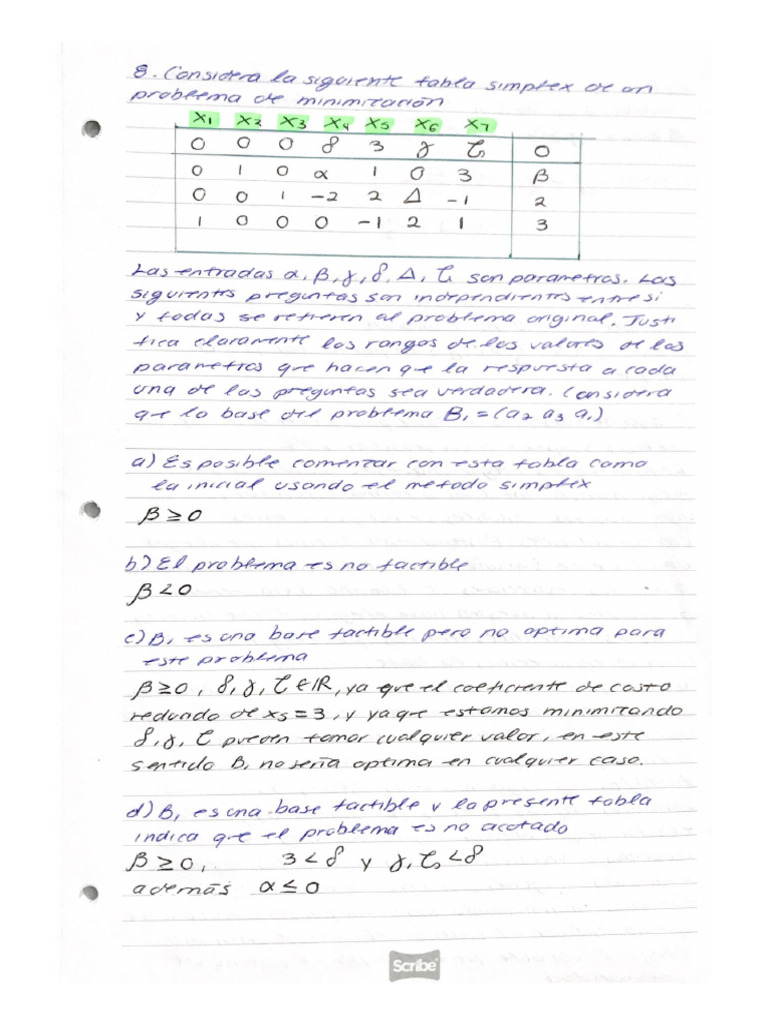 8. Considera la siguiente tabla simplex de un
problema de minimización
X1 X2 X3 X4 X5 X6 X7
0 0 0 δ 3 γ ζ 0
0 1 0 α 1 0 3 β
0 0 1 -2 2 Δ -1 2
1 0 0 0 -1 2 1 3
Las entradas α, β, γ, δ, Δ, ζ son parametros. Las
siguientes preguntas son independientes entre si
y todas se refieren al problema original. Justi
fica claramente los rangos de los valores de los
parametros que hacen que la respuesta a cada
una de las preguntas sea verdadera. Considera
que la base del problema B1 = (a2 a3 a1)
a) Es posible comenzar con esta tabla como
la inicial usando el metodo simplex
β ≥ 0
b) El problema es no factible
β < 0
c) B1 es una base factible pero no optima para
este problema
β ≥ 0, δ, γ, ζ ∈ IR, ya que el coeficiente de costo
reducido de X5 = 3, y ya que estamos minimizando
δ, γ, ζ pueden tomar cualquier valor, en este
sentido B1 no sería optima en cualquier caso.
d) B1 es una base factible y la presente tabla
indica que el problema es no acotado
β ≥ 0, 3 < δ y γ, ζ < δ
además α ≤ 0
Scribe